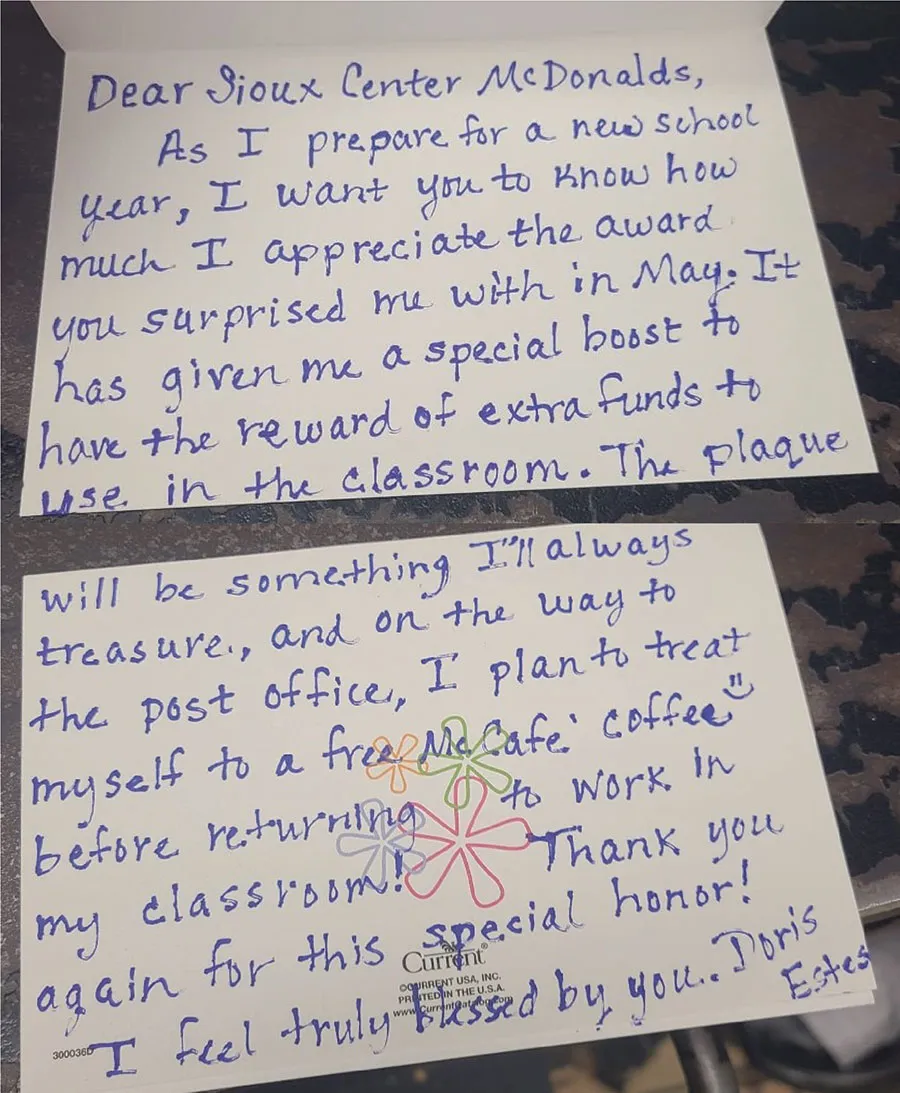 Dear Sioux Center McDonalds,
As I prepare for a new school
year, I want you to know how
much I appreciate the award
you surprised me with in May. It
has given me a special boost to
have the reward of extra funds to
use in the classroom. The plaque
will be something I'll always
treasure, and on the way to
the post office, I plan to treat
myself to a free McCafe' coffee
before returning to work in
my classroom! Thank you
again for this special honor!
I feel truly blessed by you. Doris
Estes
Current®
©CURRENT USA, INC.
PRINTED IN THE U.S.A.
www.CurrentCatalog.com
300036D